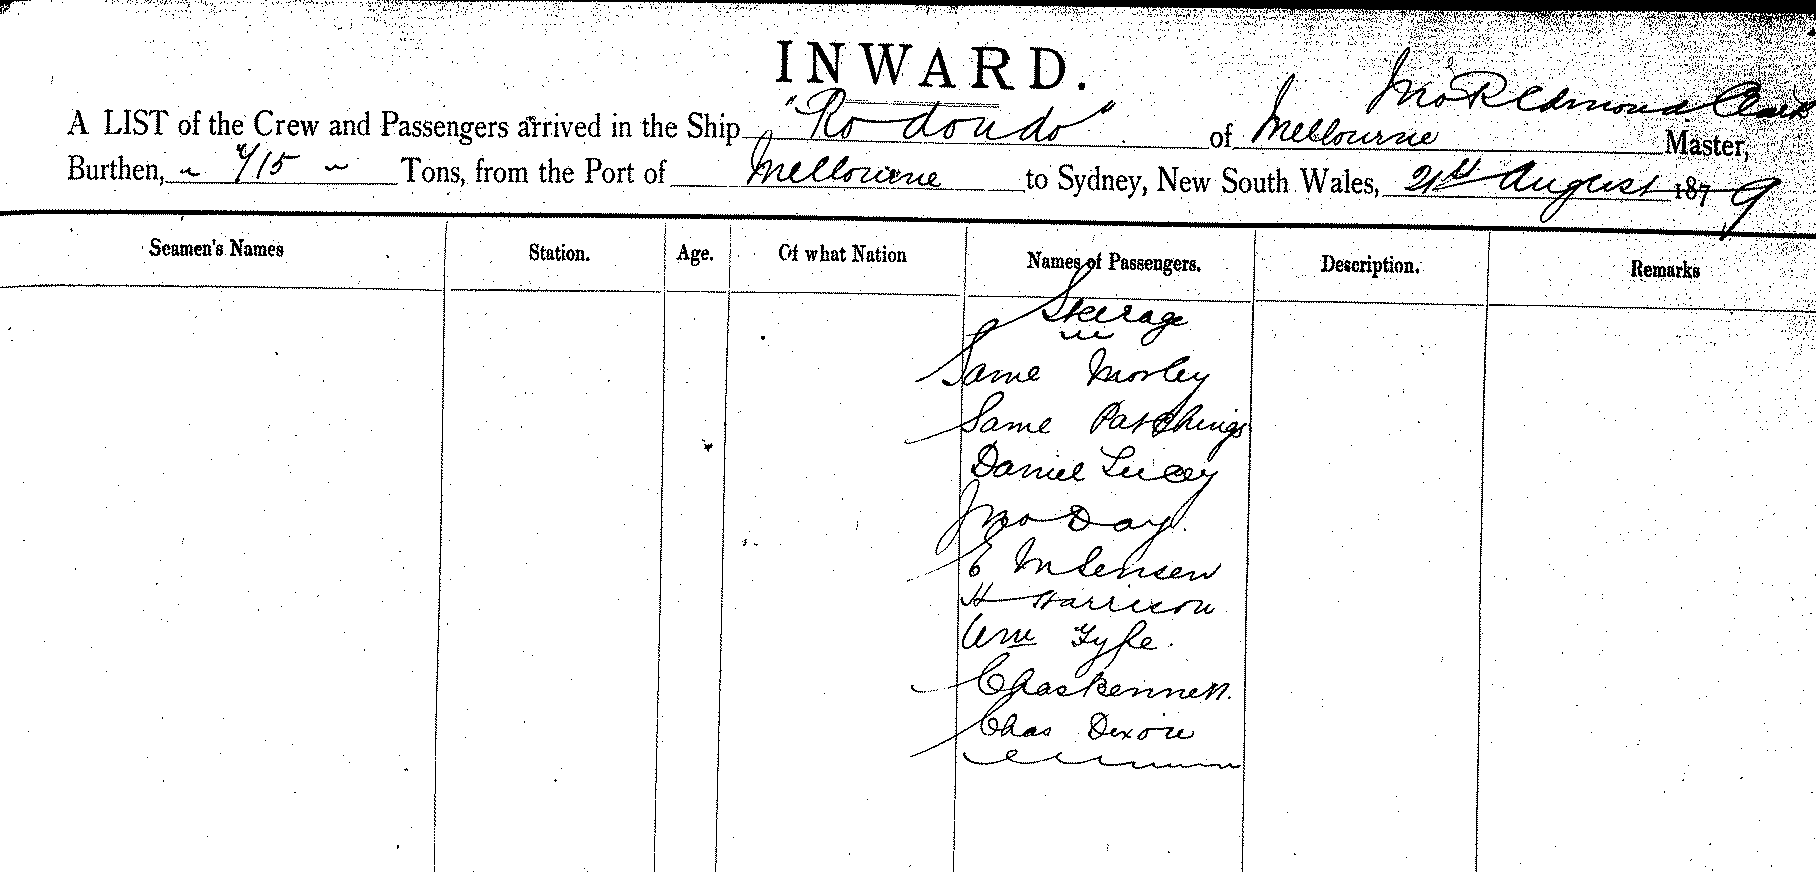 INWARD.
A LIST of the Crew and Passengers arrived in the Ship "Rodondo" of Melbourne Jno R Edmond Clark Master,
Burthen, 715 Tons, from the Port of Melbourne to Sydney, New South Wales, 21st August 1879
Seamen's Names Station. Age. Of what Nation Names of Passengers. Description. Remarks
Steerage
Same Morley
Same Patchings
Daniel Lucey
Jno Day.
E
H Harrison
Wm Fyfe.
Chas Kennett.
Chas Dixon